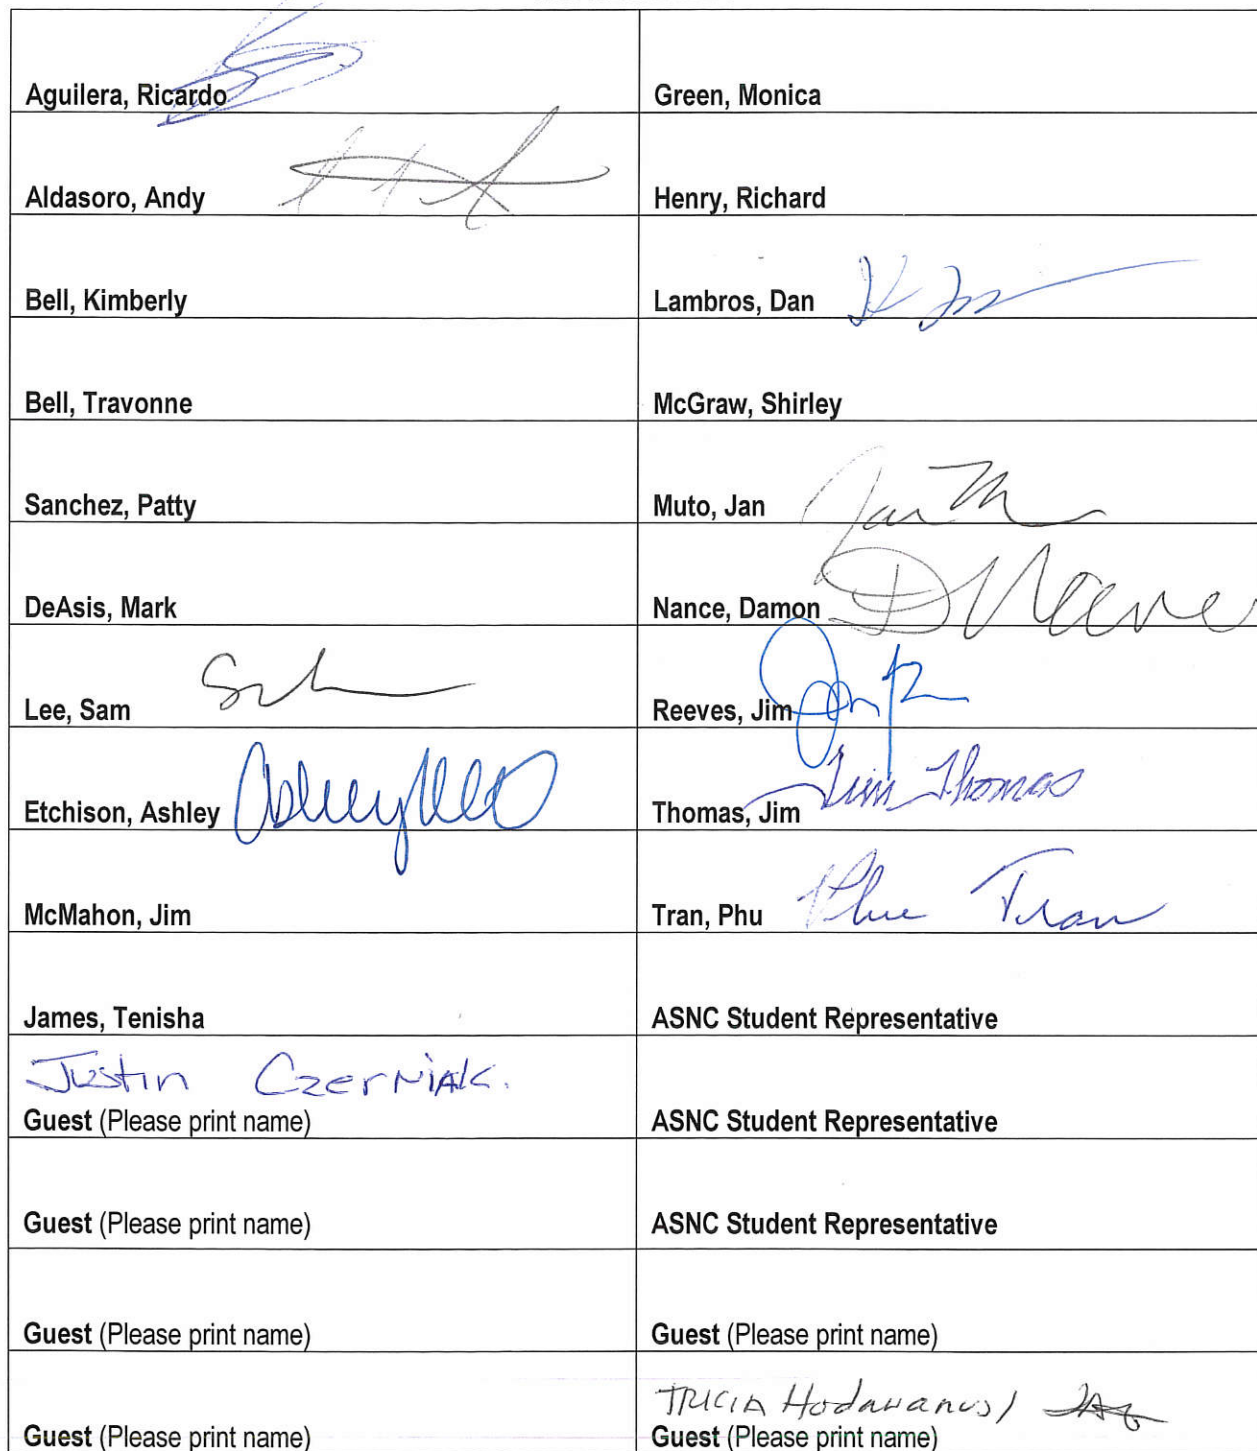 Aguilera, Ricardo
Green, Monica
Aldasoro, Andy
Henry, Richard
Bell, Kimberly
Lambros, Dan
Bell, Travonne
McGraw, Shirley
Sanchez, Patty
Muto, Jan
DeAsis, Mark
Nance, Damon
D Nance
Lee, Sam
Reeves, Jim
Etchison, Ashley
Ashley
Thomas, Jim
Jim Thomas
McMahon, Jim
Tran, Phu
Phu Tran
James, Tenisha
ASNC Student Representative
Justin Czerniak.
Guest (Please print name)
ASNC Student Representative
Guest (Please print name)
ASNC Student Representative
Guest (Please print name)
Guest (Please print name)
Guest (Please print name)
TRICIA
Guest (Please print name)